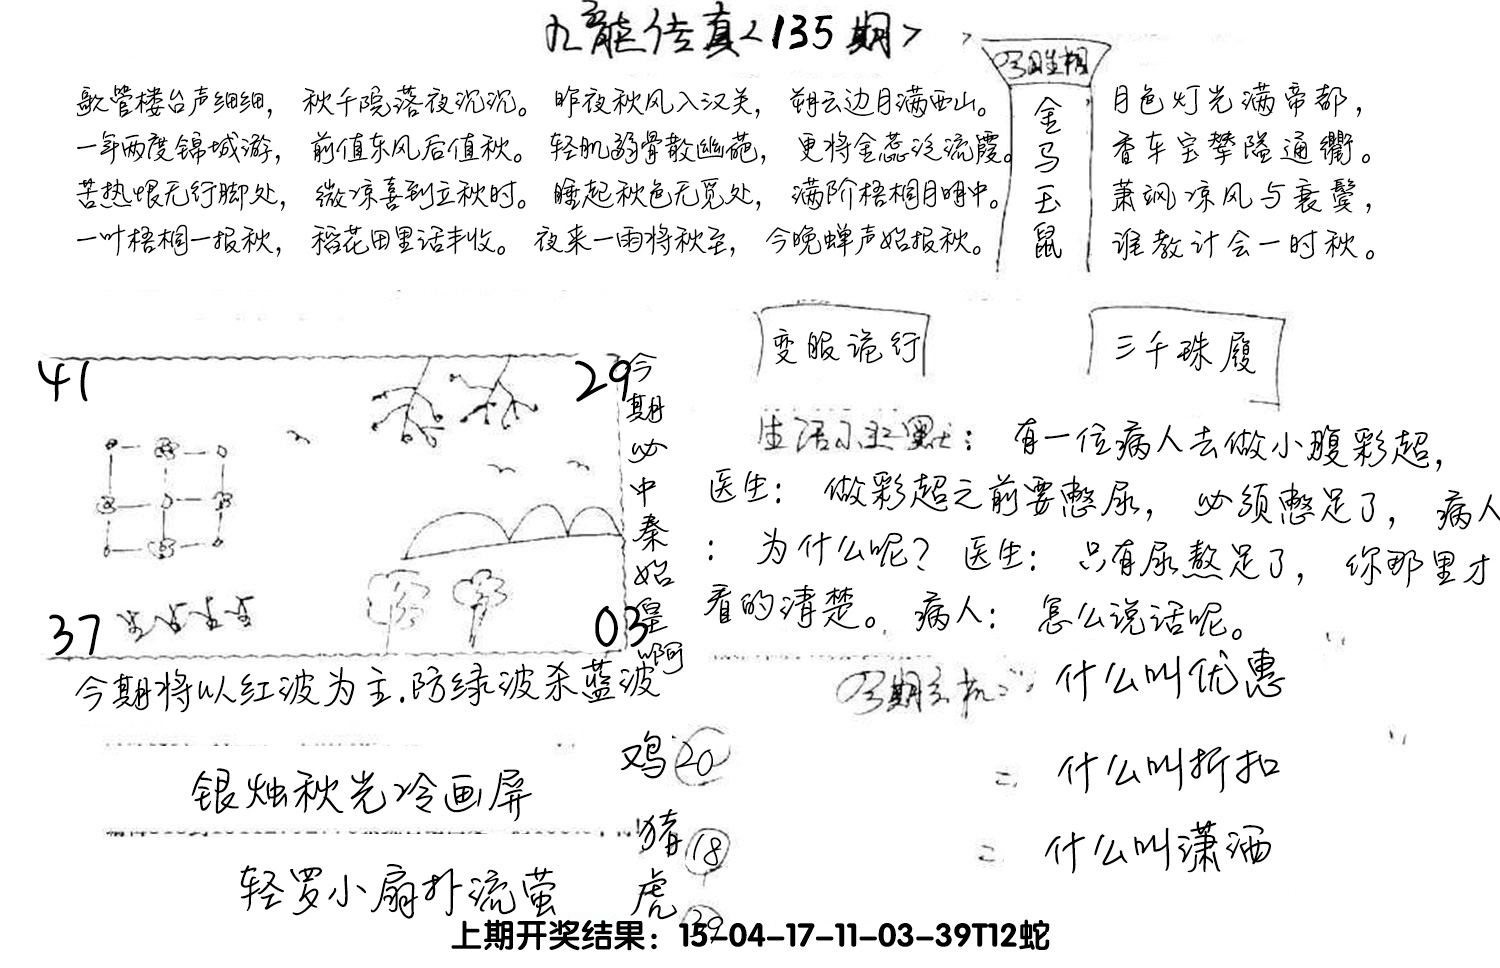 九龍传真<135期>
歌管楼台声细细，秋千院落夜沉沉。昨夜秋风入汉关，朔云边月满西山。
一年两度锦城游，前值东风后值秋。轻肌弱骨散幽葩，更将金蕊泛流霞。
苦热恨无行脚处，微凉喜到立秋时。睡起秋色无觅处，满阶梧桐月明中。
一叶梧桐一报秋，稻花田里话丰收。夜来一雨将秋至，今晚蝉声始报秋。
今期生相
金马玉鼠
月色灯光满帝都，
香车宝辇隘通衢。
萧飒凉风与衰鬓，
谁教计会一时秋。
变服诡行
三千珠履
41
29
37
03
今期必中秦始皇啊
生活小幽默：有一位病人去做小腹彩超，
医生：做彩超之前要憋尿，必须憋足了，病人
：为什么呢？医生：只有尿熬足了，你那里才
看的清楚。病人：怎么说话呢。
今期将以红波为主.防绿波杀蓝波
今期玄机：什么叫优惠
= 什么叫折扣
= 什么叫潇洒
银烛秋光冷画屏
轻罗小扇扑流萤
鸡20
猪18
虎39
上期开奖结果：15-04-17-11-03-39T12蛇